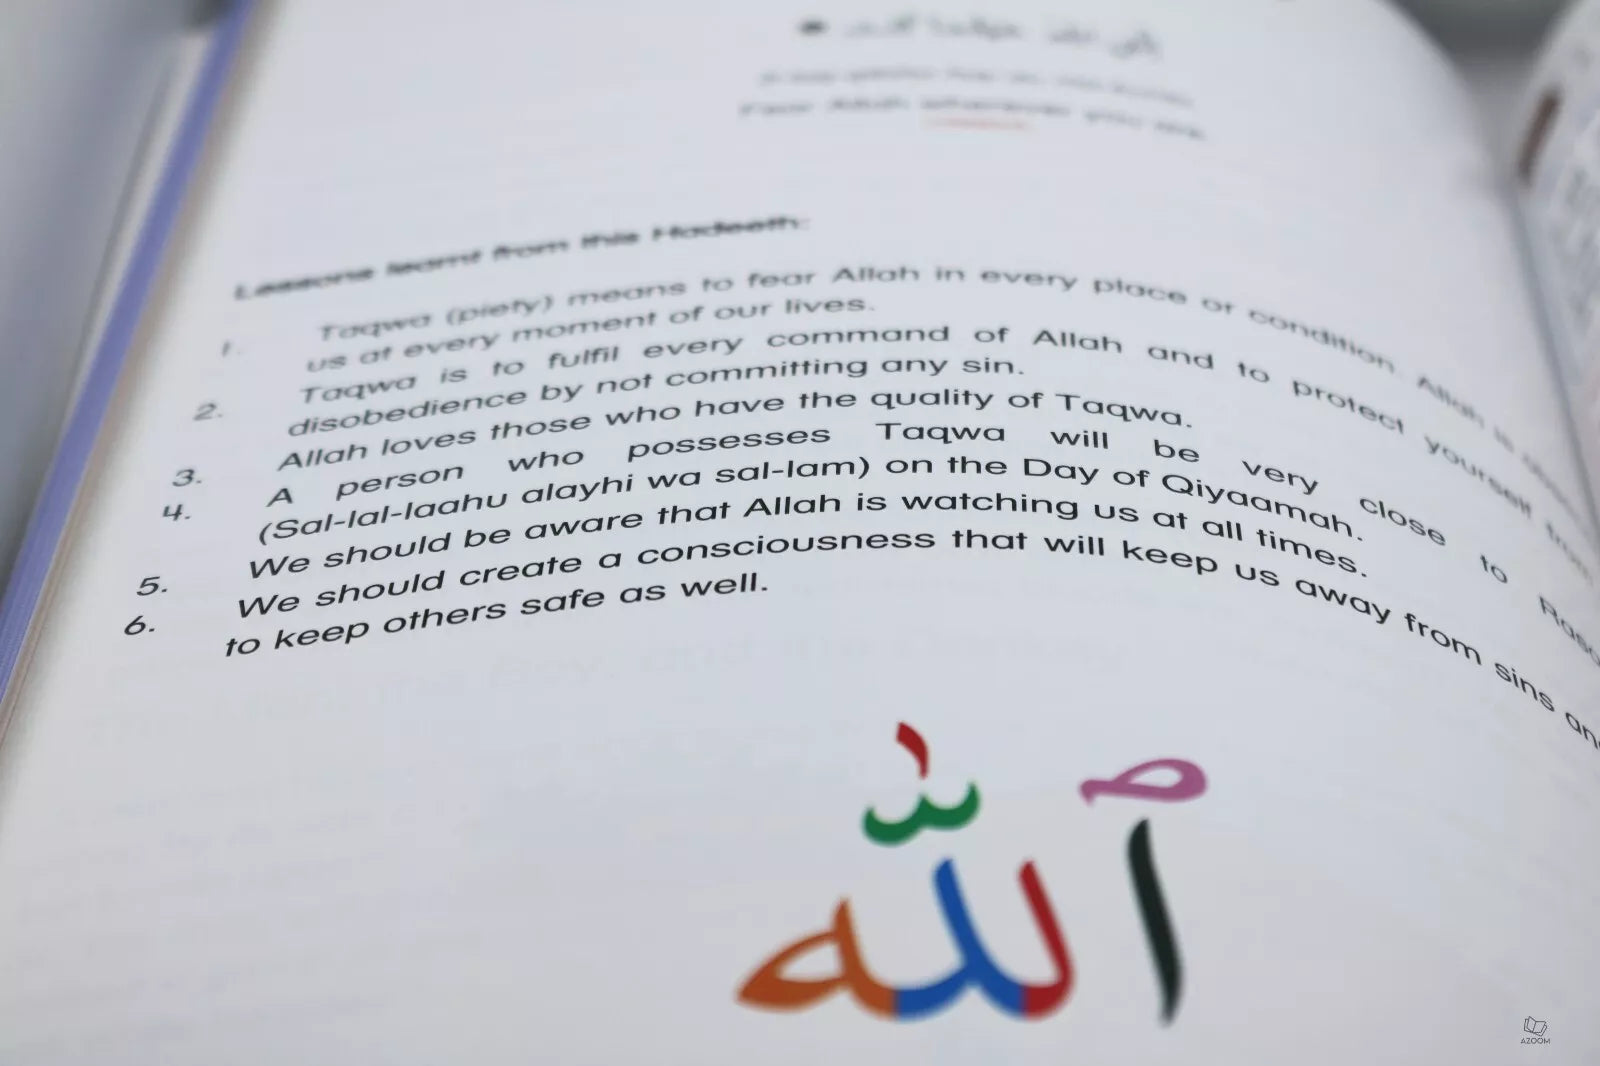 Fear Allah wherever you are.
Lessons learnt from this Hadeeth:
1. Taqwa (piety) means to fear Allah in every place or condition. Allah is
us at every moment of our lives.
2. Taqwa is to fulfil every command of Allah and to protect yourself from
disobedience by not committing any sin.
3. Allah loves those who have the quality of Taqwa.
4. A person who possesses Taqwa will be very close to
(Sal-lal-laahu alayhi wa sal-lam) on the Day of Qiyaamah.
5. We should be aware that Allah is watching us at all times.
6. We should create a consciousness that will keep us away from sins
to keep others safe as well.
ٱللّٰه
AZOOM